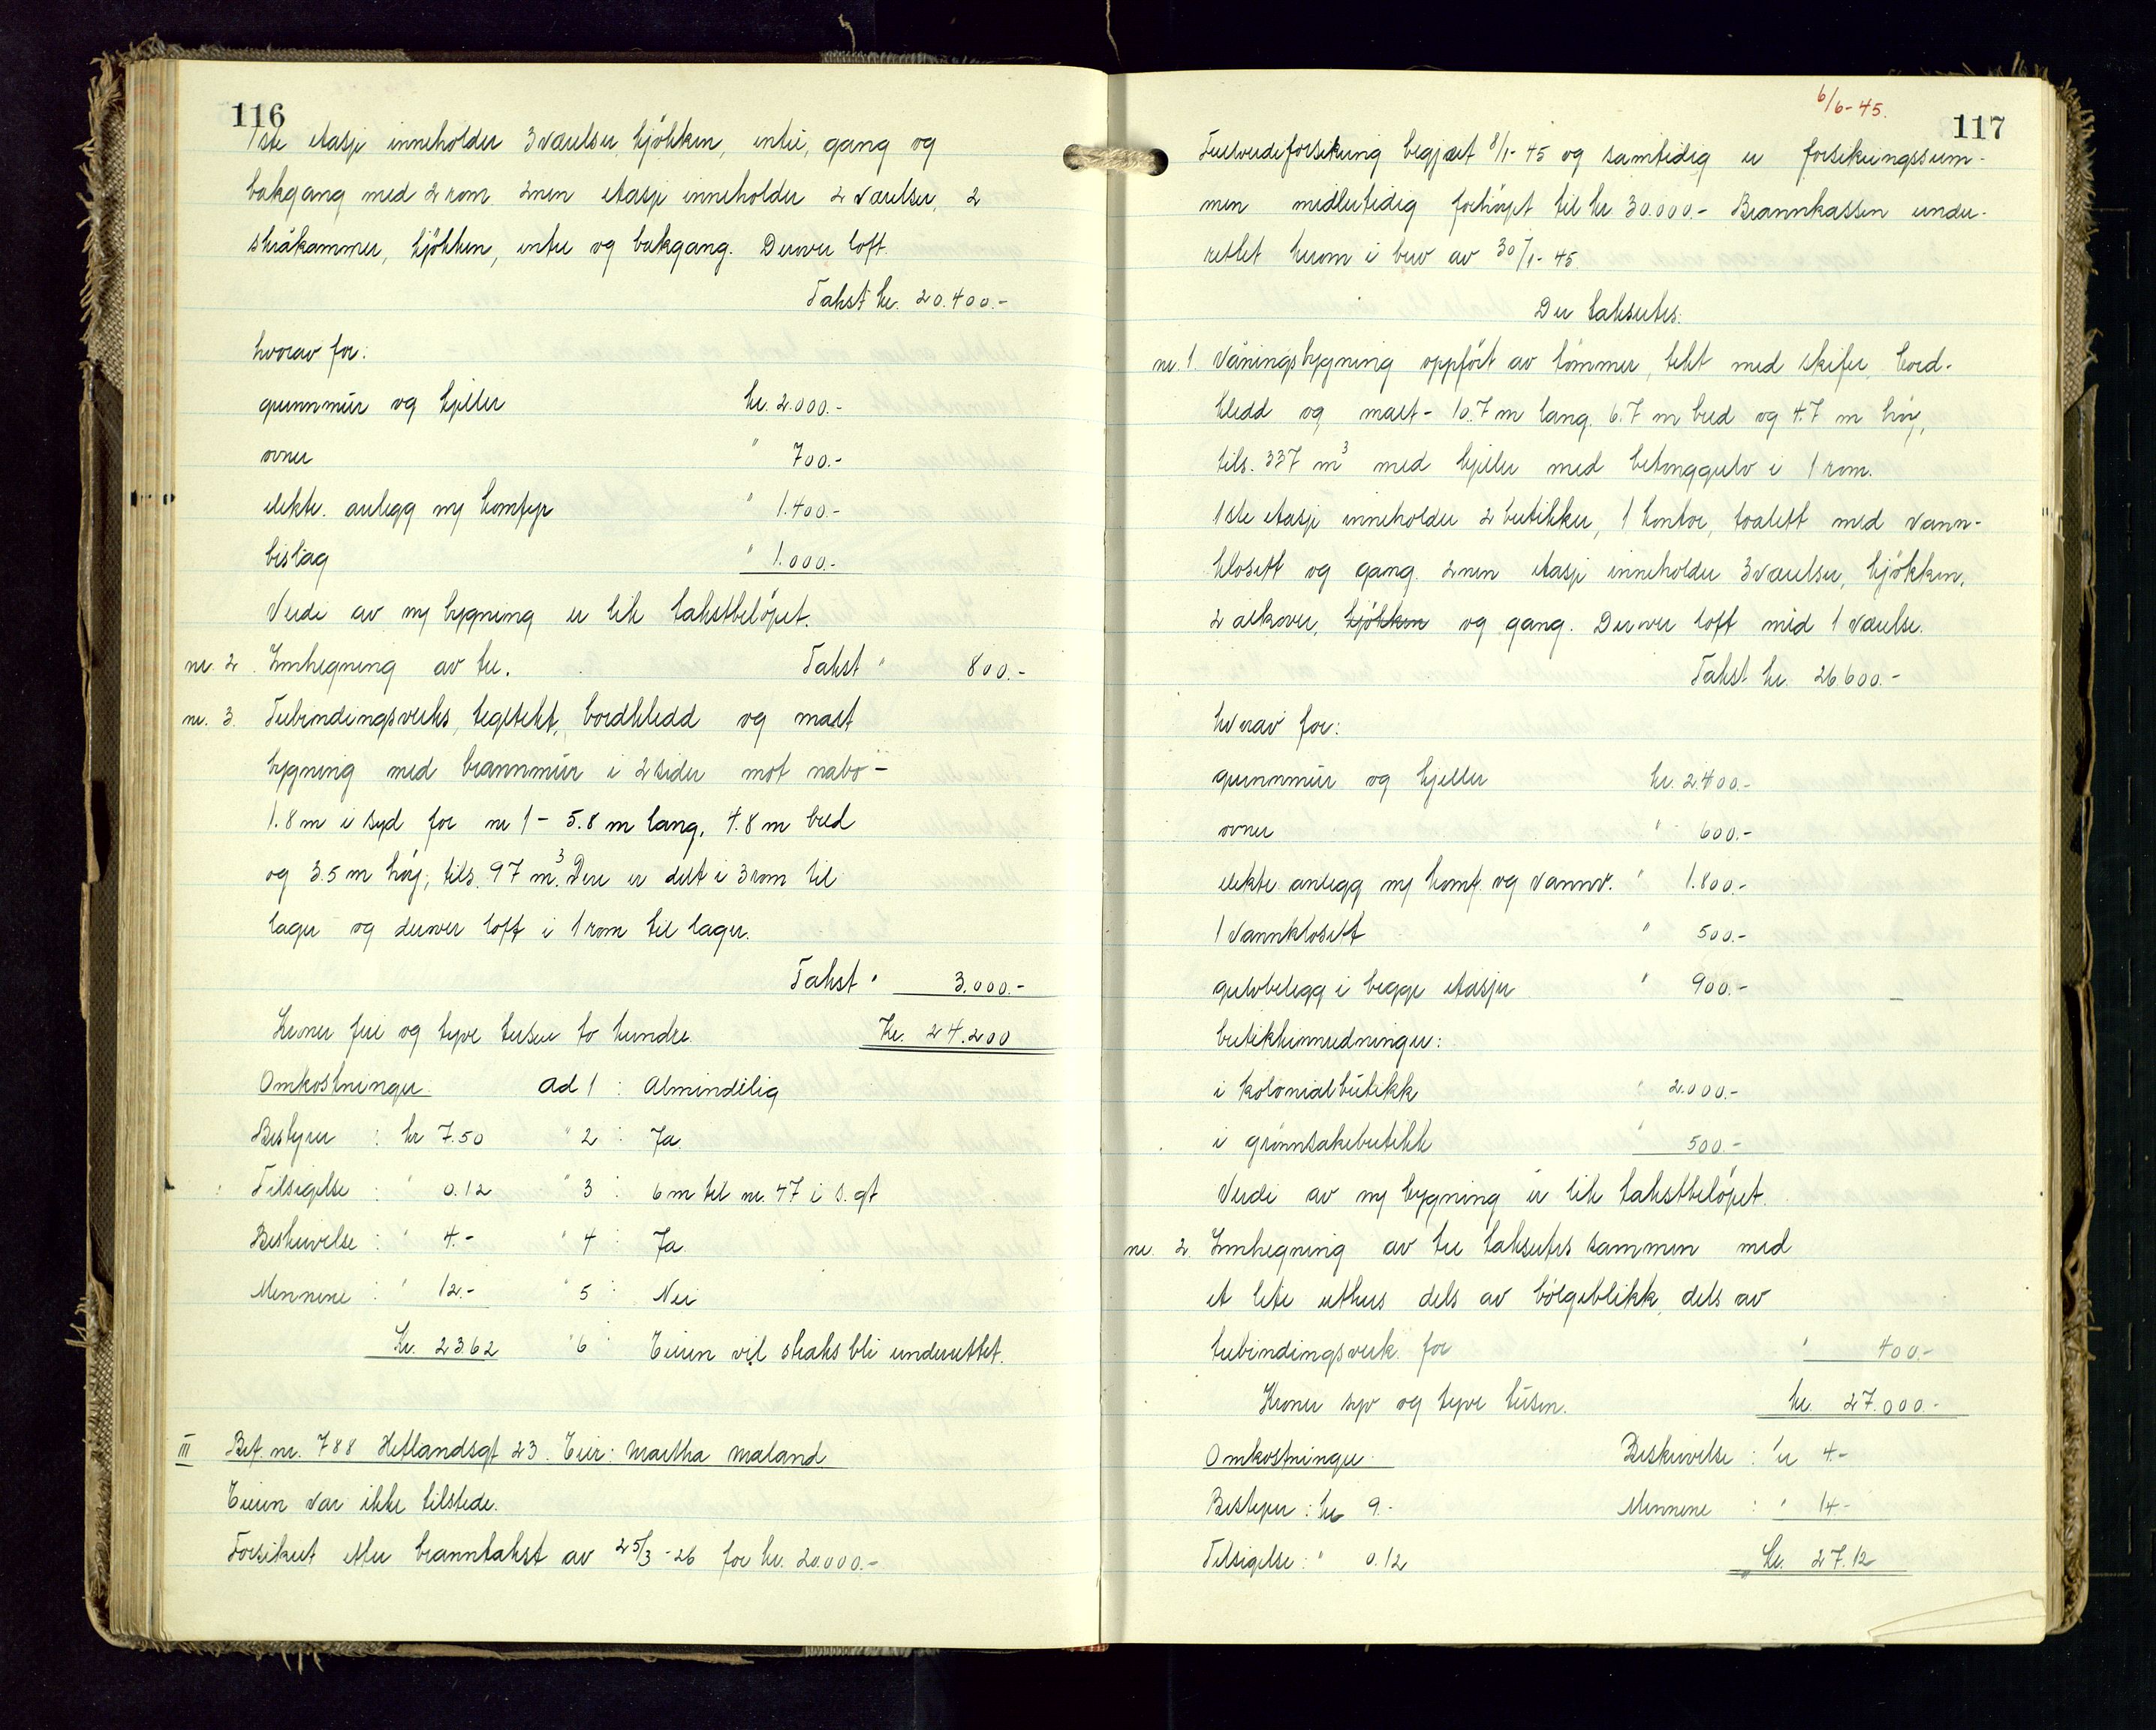 116
1ste etasje inneholder 3 værelser, kjökken, entre, gang og
bakgang med 2 rom. 2nen etasje inneholder 2 værelser, 2
skråkammer, kjökken, entre og bakgang. Derover loft.
Takst kr. 20.400.-
hvorav for:
grunnmur og kjeller kr. 2.000.-
ovner " 700.-
elektr. anlegg m/ komfyr " 1.400.-
bislag " 1.000.-
Verdi av m/ bygning er lik takstbelöpet.
nr. 2. Innhegning av tre. Takst " 800.-
nr. 3. Trebindingsverks, teglstekt, bordkledd og malt
bygning med brannmur i 2 sider mot nabo -
1.8 m i syd for nr 1 - 5.8 m lang, 4.8 m bred
og 3.5 m höy, tils. 97 m³. Dere er delt i 3 rom til
lager og derover loft i 1 rom til lager.
Takst " 3.000.-
Kroner fire og tyve tusen to hundre. Kr. 24.200
Omkostninger ad 1 : Almindelig
Bestyrer : kr 7.50 " 2 : Ja.
Tilsigelse : " 0.12 " 3 : 6 m til nr. 47 i s. gt
Beskrivelse : " 4.- " 4 : Ja
Mennene : " 12.- " 5 : Nei
Kr. 23.62 " 6 : Eieren vil straks bli underrettet.
III Brf. nr. 788 Hetlandsgt 23. Eier: Martha Maland
Eieren var ikke tilstede.
Forsikret etter branntakst av 25/3-26 for kr. 20.000.-
6/6-45.
117
Fullverdiforsikring begjært 8/1-45 og samtidig er forsikringssum-
men midlertidig forhöyet til kr 30.000.- Brannkassen under-
rettet herom i brev av 30/1-45.
Der takseres:
nr. 1. Våningsbygning oppfört av tömmer, tekt med skifer, bord-
kledd og malt - 10.7 m lang, 6.7 m bred og 4.7 m höy,
tils. 337 m³ med kjeller med betonggulv i 1 rom.
1ste etasje inneholder 2 butikker, 1 kontor, toalett med vann-
klosett og gang. 2nen etasje inneholder 3 værelser, kjökken,
2 alkover, kjökken og gang. Derover loft med 1 værelse.
Takst kr. 26.600.-
hvorav for:
grunnmur og kjeller kr. 2.400.-
ovner " 600.-
elektr. anlegg m/ komf. og vannv. " 1.800.-
1 vannklosett " 500.-
gulvbelegg i begge etasjer " 900.-
butikkinnredninger:
i kolonialbutikk " 2.000.-
i grönnsakebutikk " 500.-
Verdi av m/ bygning er lik takstbelöpet.
nr. 2. Innhegning av tre takseres sammen med
et lite uthus dels av bölgeblikk, dels av
trebindingsverk for " 400.-
Kroner syv og tyve tusen. kr. 27.000.-
Omkostninger Beskrivelse : kr 4.-
Bestyrer : kr 9.- Mennene : " 14.-
Tilsigelse : " 0.12 Kr. 27.12